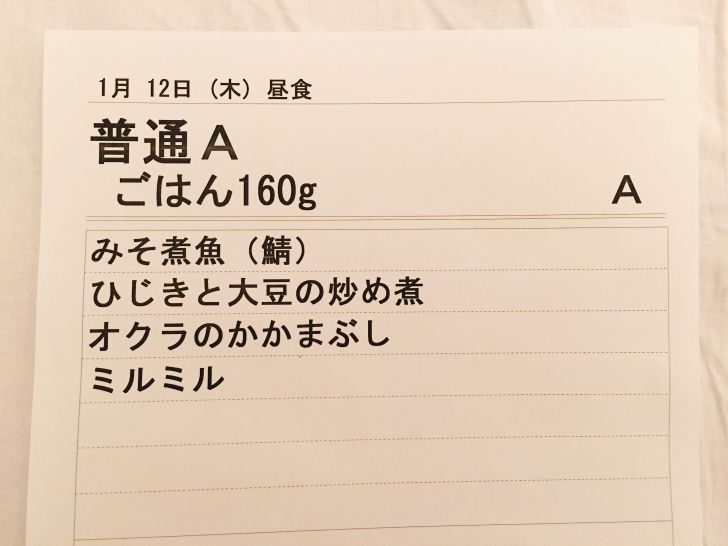 1月 12日 (木) 昼食
普通A
ごはん160g A
みそ煮魚 (鯖)
ひじきと大豆の炒め煮
オクラのかかまぶし
ミルミル